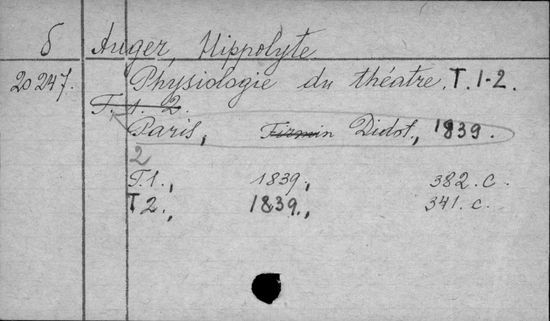 б Auger, Hippolyte
20247. Physiologie du théatre. T.1-2.
T. 1. 2.
Paris, Firmin Didot, 1839.
2
T.1., 1839, 382.c.
T2., 1839., 341.c.